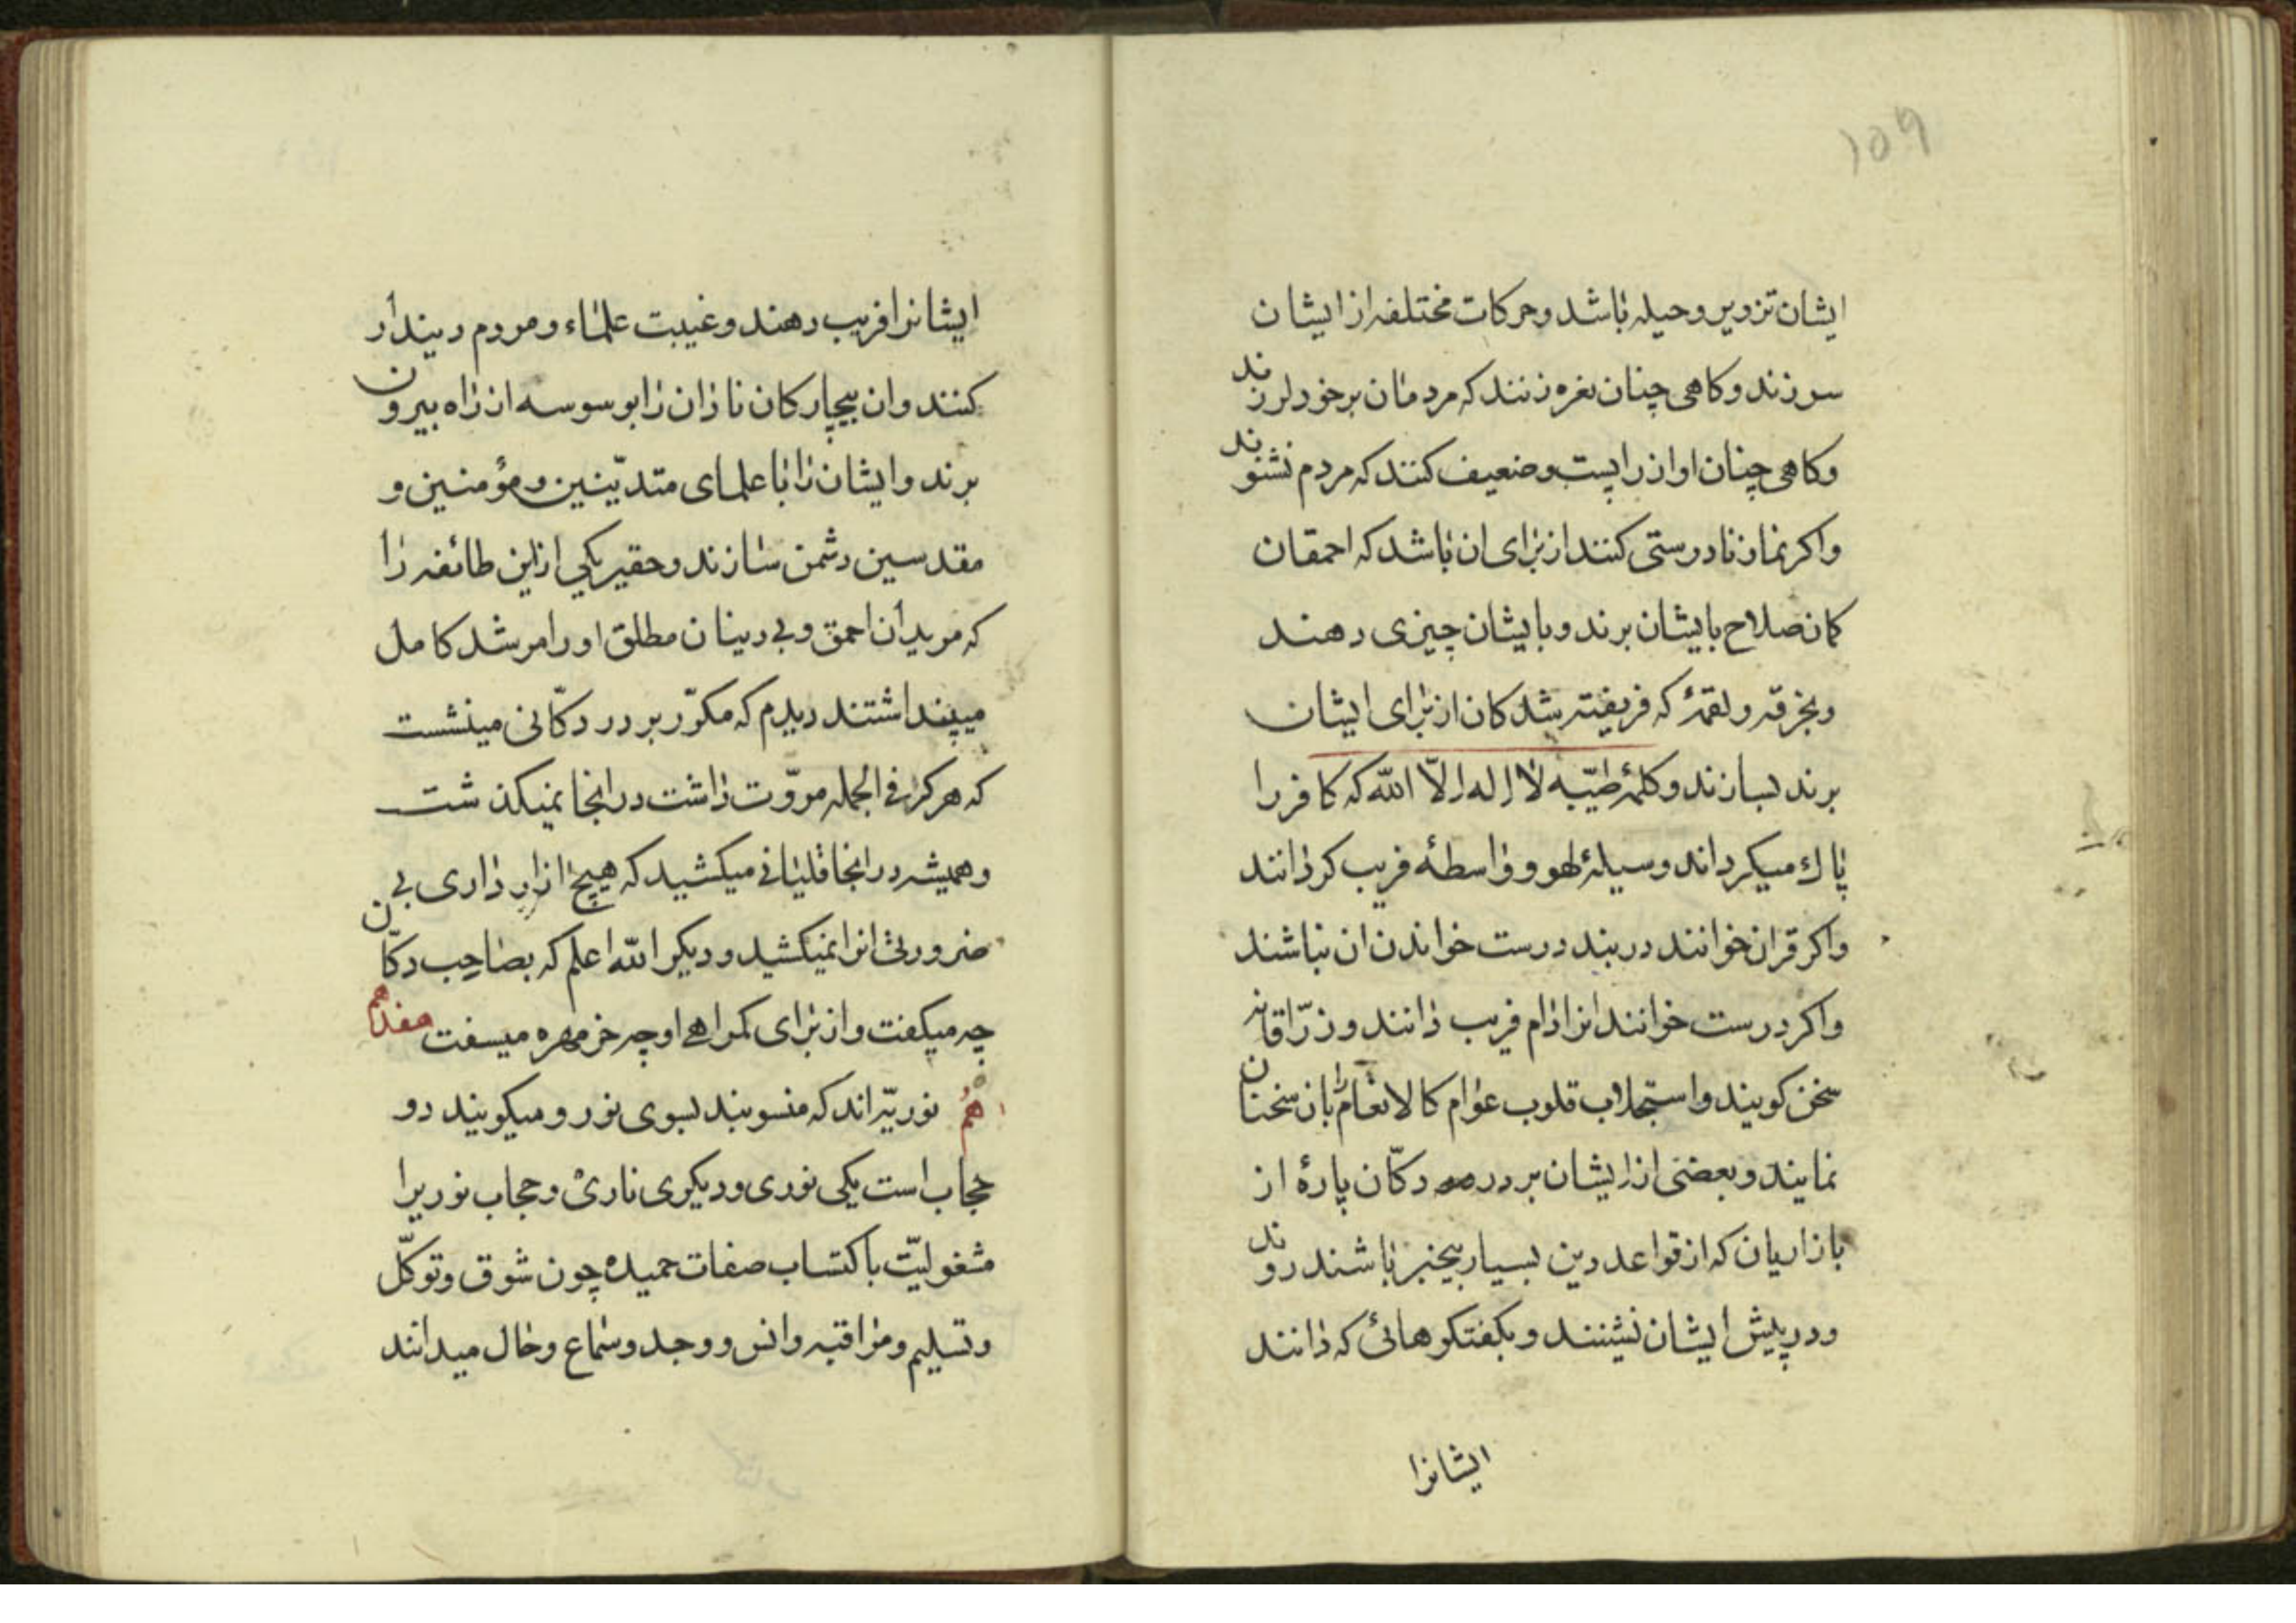 ۱۵۹
ایشان تزویر وحیله باشد وحرکات مختلفه از ایشان
سر زند وکاهی چنان نعره زنند که مردمان بر خود لرزند
وکاهی چنان اواز را پست وضعیف کنند که مردم نشنوند
واکر نماز نادرستی کنند از برای ان باشد که احمقان
کمان صلاح بایشان برند وبایشان چیزی دهند
وبخرقه ولقمۀ که فریفته شدکان از برای ایشان
برند بسازند وکلمۀ طیّبه لا اله الّا الله که کافر را
پاك میکرداند وسیلۀ لهو وواسطۀ فریب کردانند
واکر قران خوانند در بند درست خواندن ان نباشند
واکر درست خوانند انرا دام فریب دانند وزرّاقانه
سخن کویند واستجلاب قلوب عوام کالانعام بان سخنان
نمایند وبعضی از ایشان بر در دکّان پارۀ از
بازاریان که از قواعد دین بسیار بیخبر باشند روند
ودر پیش ایشان نشینند وبکفتکوهائی که دانند
ایشانرا
ایشانرا فریب دهند وغیبت علماء ومردم دیندار
کنند وان بیچارکان نادان را بوسوسه از راه بیرون
برند وایشان را با علمای متدیّنین ومؤمنین و
مقدسین دشمن سازند وحقیر یکی از این طائفه را
که مریدان احمق وبی دینان مطلق او را مرشد کامل
میپنداشتند دیدم که مکرّر بر در دکّانی مینشست
که هرکز فی الجمله مروّت داشت در انجا نمیکذشت
وهمیشه در انجا قلیانی میکشید که هیچ ازار داری بی
ضرورتی انرا نمیکشید ودیکر الله اعلم که بصاحب دکّان
چه میکفت واز برای کمراهی او چه خر مهره میسفت هفدهم
هم نوریّه اند که منسوبند بسوی نور ومیکویند دو
حجاب است یکی نوری ودیکری ناری وحجاب نوریرا
مشغولیّت باکتساب صفات حمیده چون شوق وتوکّل
وتسلیم ومراقبه وانس ووجد وسماع وحال میدانند